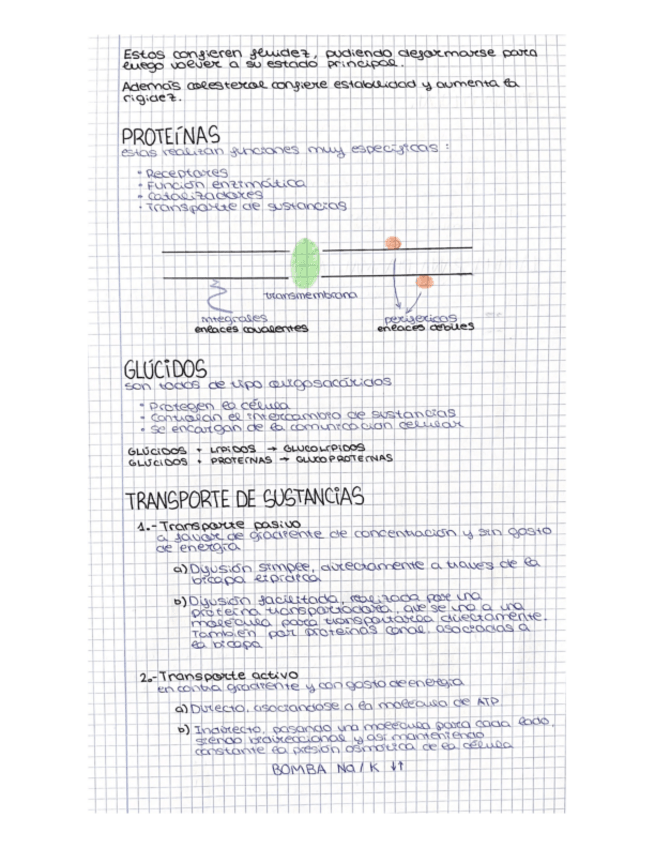 Estos confieren fluidez, pudiendo deformarse para
luego volver a su estado principal.
Además colesterol confiere estabilidad y aumenta la
rigidez.
PROTEÍNAS
estas realizan funciones muy específicas :
· Receptores
· Función enzimática
· Catalizadores
· Transporte de sustancias
transmembrana
integrales
enlaces covalentes
periféricas
enlaces débiles
GLÚCIDOS
son todos de tipo oligosacáridos
· Protegen la célula
· Controlan el intercambio de sustancias
· Se encargan de la comunicación celular
GLÚCIDOS + LÍPIDOS → GLUCOLÍPIDOS
GLÚCIDOS + PROTEÍNAS → GLUCOPROTEÍNAS
TRANSPORTE DE SUSTANCIAS
1.- Transporte pasivo
a favor de gradiente de concentración y sin gasto
de energía
a) Difusión simple, directamente a través de la
bicapa lipídica
b) Difusión facilitada, realizada por una
proteína transportadora, que se une a una
molécula para transportarla directamente.
También por proteínas canal asociadas a
la bicapa
2.- Transporte activo
en contra gradiente y con gasto de energía
a) Directo, asociandose a la molécula de ATP
b) Indirecto, pasando una molécula para cada lado,
siendo bidireccional y así manteniendo
constante la presión osmótica de la célula
BOMBA Na / K ↓↑